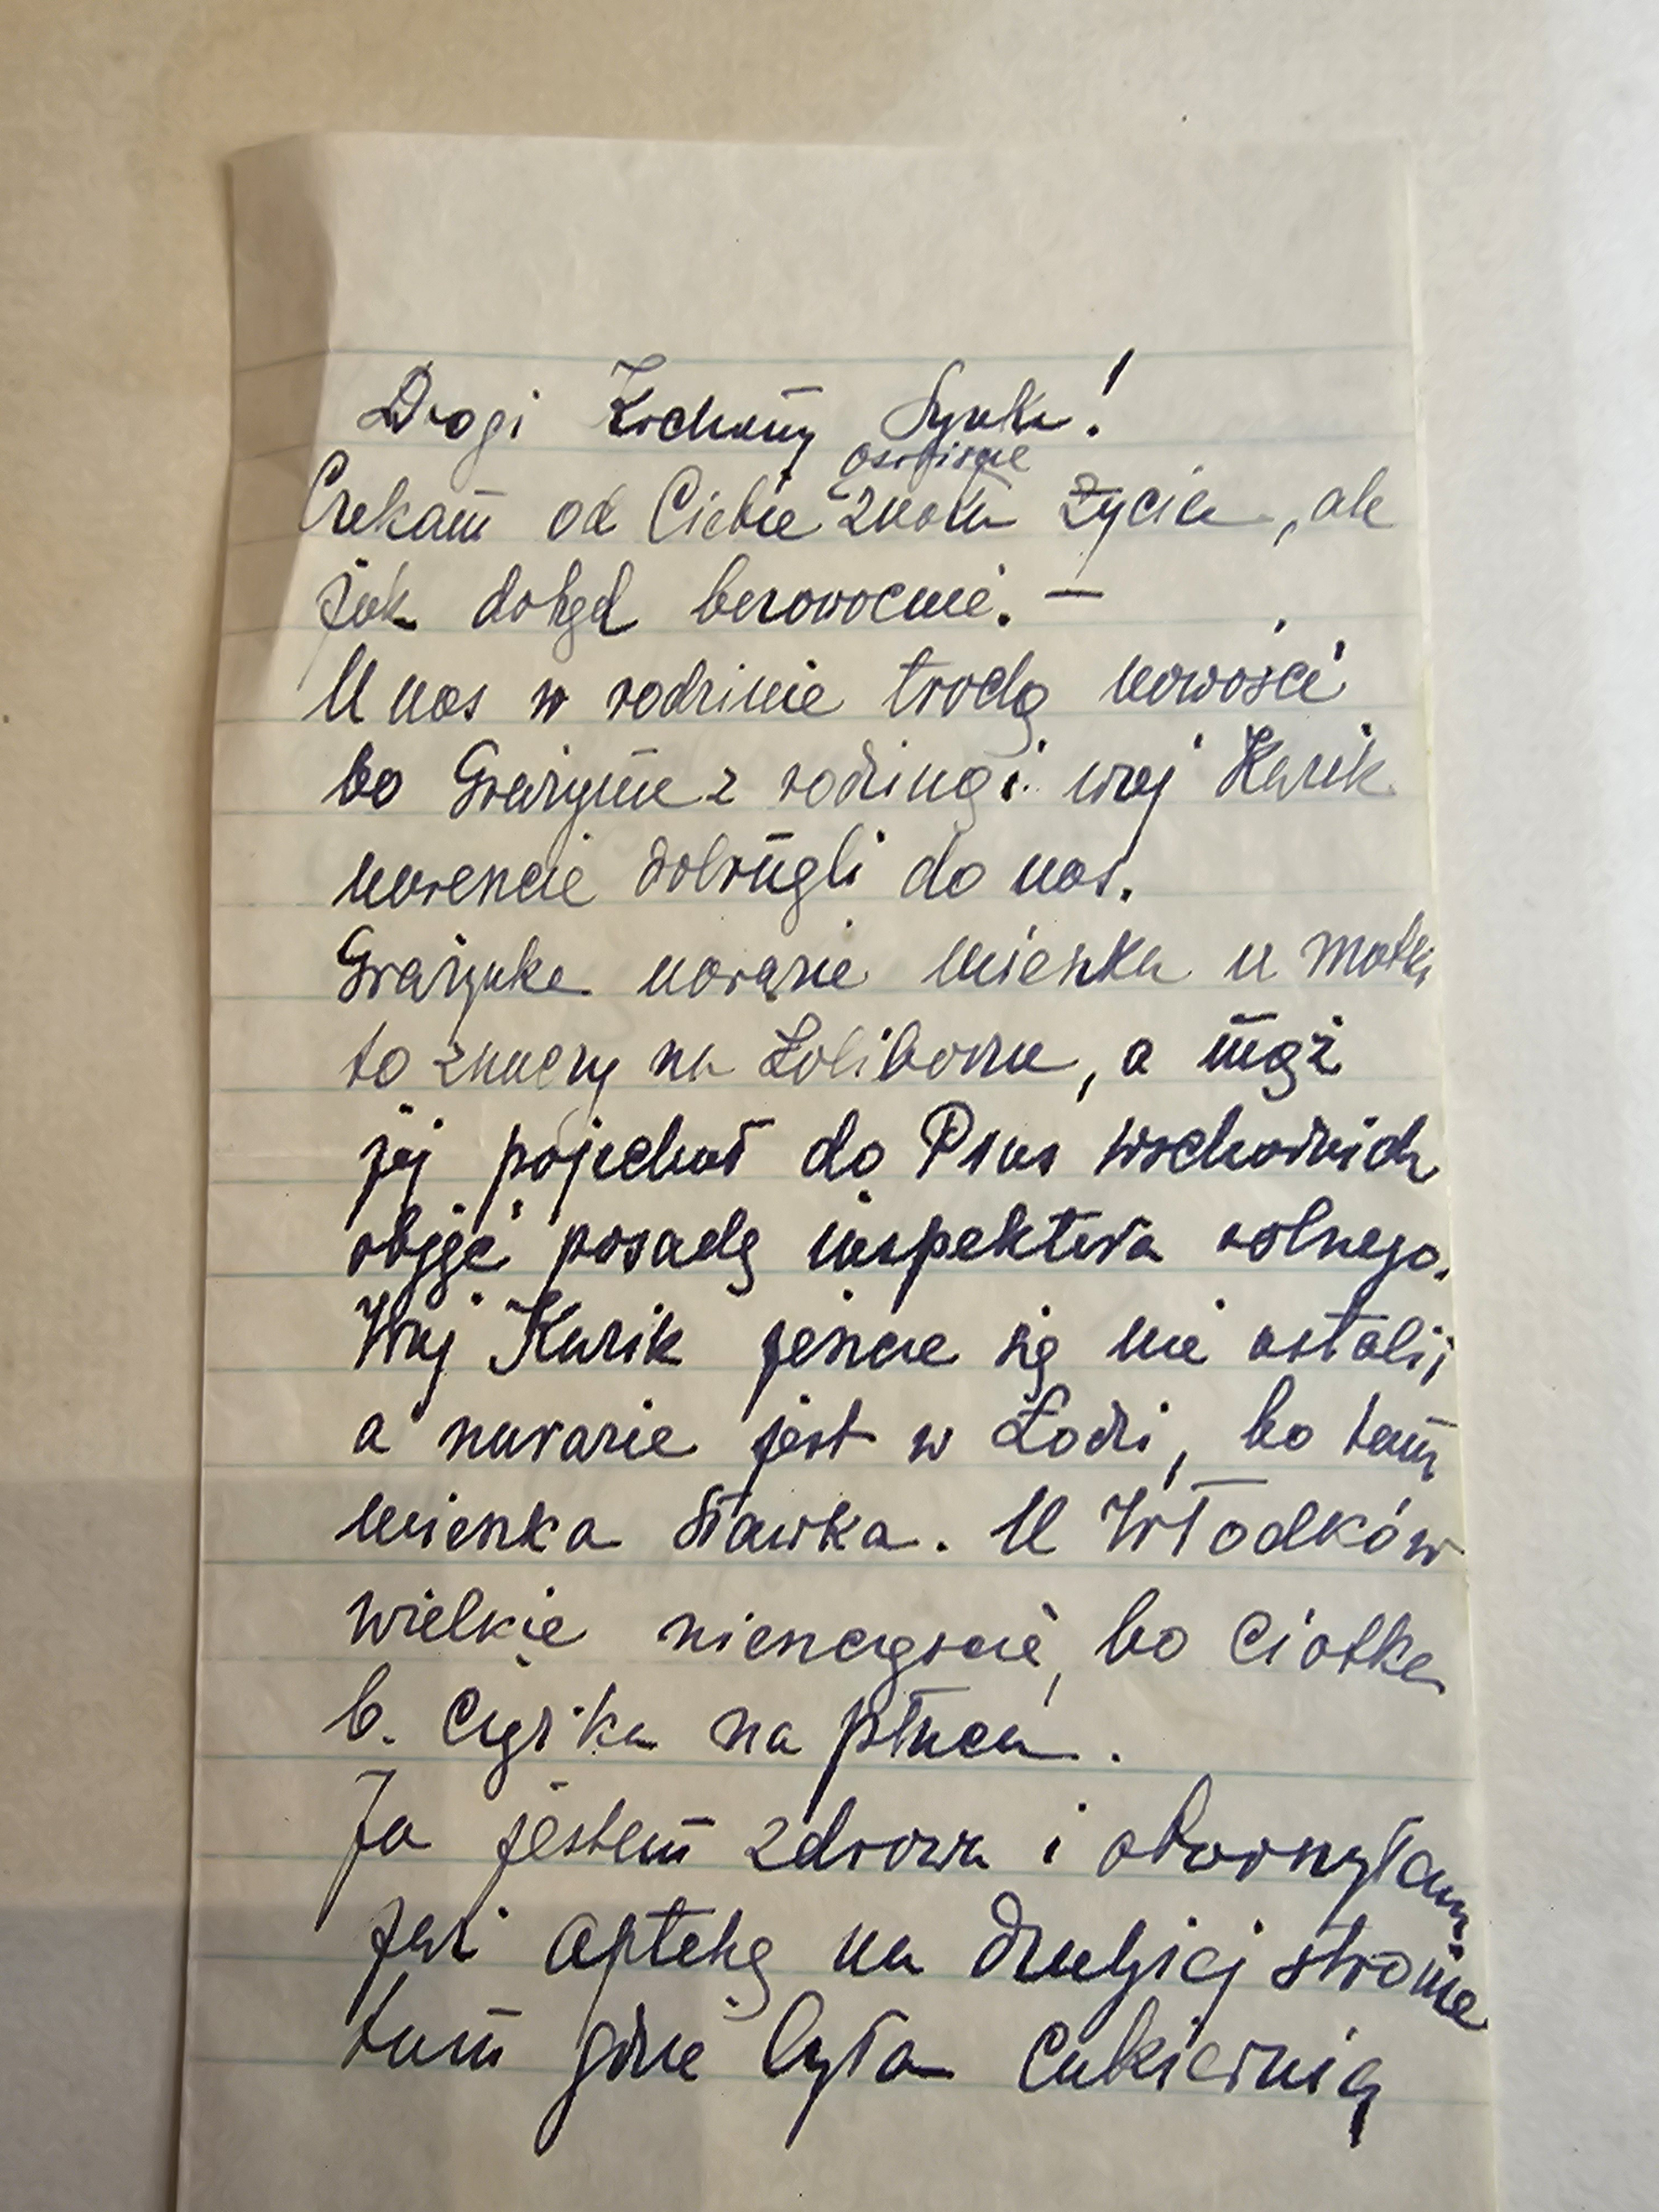 Drogi Kochany Synku!
Czekam od Ciebie osobiście znaku życia, ale
jak dotąd bezowocnie. —
U nas w rodzinie trochę nowości
bo Grażyna z rodziną i wuj Kazik
nareszcie dobrnęli do nas.
Grażynka narazie mieszka u matki
to znaczy na Żoliborzu, a mąż
jej pojechał do Prus wschodnich
objąć posadę inspektora rolnego.
Wuj Kazik jeszcze się nie ustalił
a narazie jest w Łodzi, bo tam
mieszka Sławka. U Włodków
wielkie nieszczęście, bo Ciotka
b. ciężka na płuca.
Ja jestem zdrowa i otworzyłam
już aptekę na drugiej stronie
tam gdzie była cukiernia